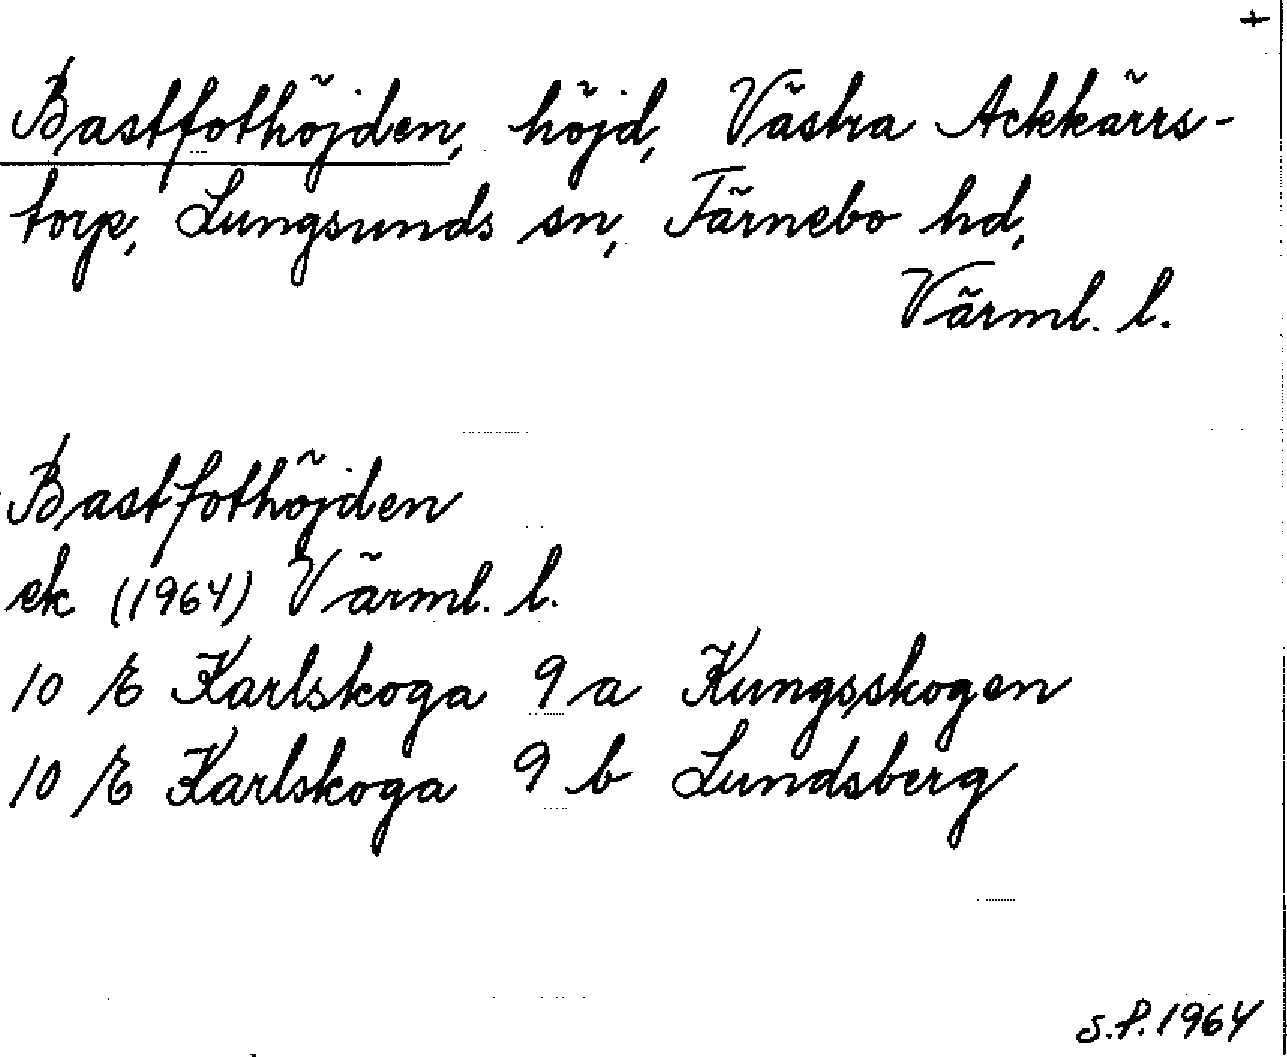 +
Bastfothöjden, höjd, Västra Ackkärrs-
torp, Lungsunds sn, Färnebo hd,
Värml. l.
Bastfothöjden
ek (1964) Värml. l.
10 E Karlskoga 9 a Kungsskogen
10 E Karlskoga 9 b Lundsberg
S.P. 1964